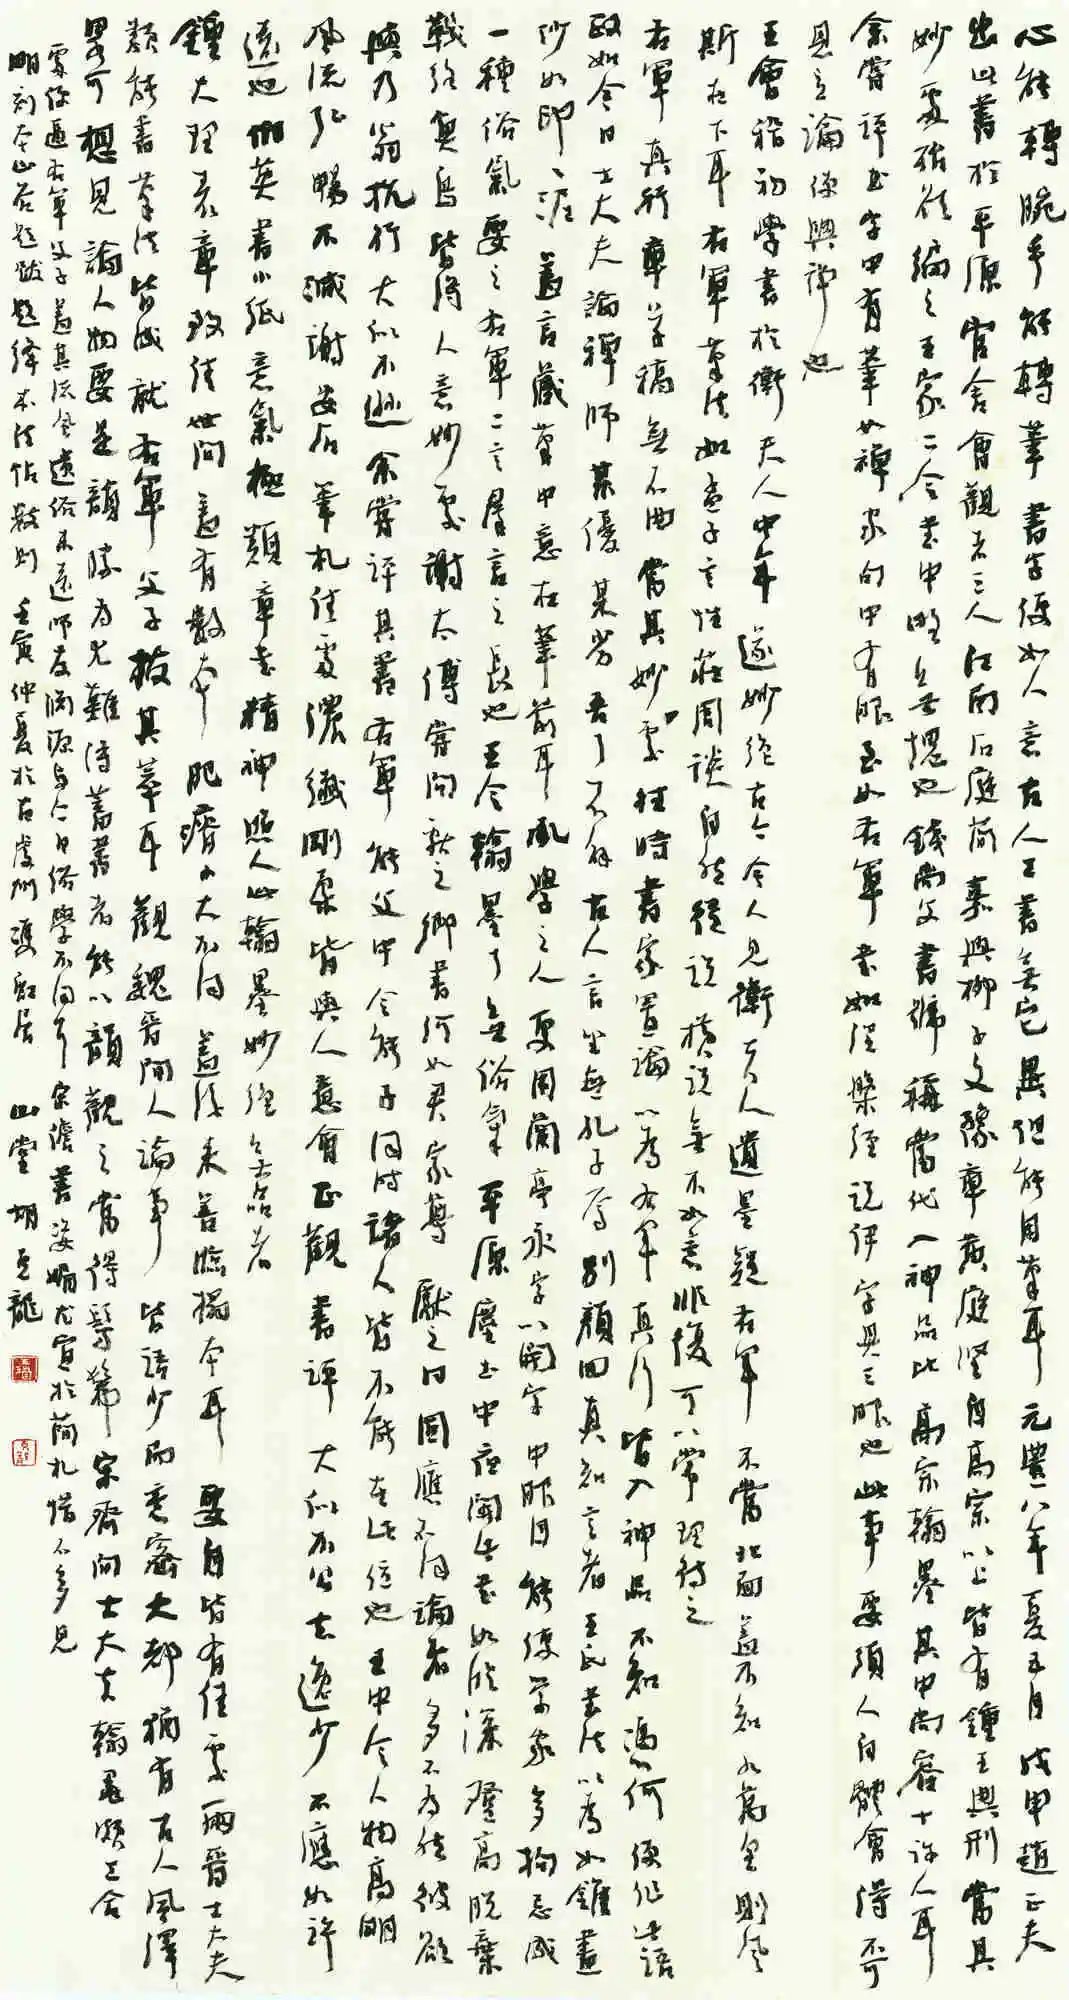 心能轉腕手能轉筆書字便如人意古人工書無它異但能用筆耳元豐八年夏五月戊申趙正夫
出此書於平原官舍會觀者三人江南石庭簡嘉興柳子文豫章黃庭堅自高宗以上皆有鍾王典刑當其
妙處殆欲編之王家二令書中略無愧也錢尚父書號稱當代入神品比高宗翰墨其中尚容十許人耳
余嘗評書字中有筆如禪家句中有眼至如右軍書如涅槃經說伊字具三眼也此事要須人自體會得不可
見立論便興諍也
王會稽初學書於衛夫人中年遂妙絕古今今人見衛夫人遺墨疑右軍不當北面蓋不知九萬里則風
斯在下耳右軍筆法如孟子言性莊周談自然縱說橫說無不如意非復可以常理待之
右軍真行章草藁無不曲當其妙處往時書家置論以為右軍真行皆入神品不知憑何便作此語
政如今日士大夫論禪師某優某劣吾了不解古人言坐無孔子焉別顏回真知言者王氏書法以為如錐畫
沙如印印泥蓋言藏筆中意在筆前耳承學之人更用蘭亭永字以開字中眼目能使學家多拘忌成
一種俗氣要之右軍二言群言之長也王令翰墨了無俗氣平原塵土中夜開此書如臨深登高脫棄
戰絕奧烏皆得人意妙處謝太傅嘗問獻之卿書何如君家尊獻之曰固應不同論者多不為然彼欲
與乃翁抗行大似不遜余嘗評其書右軍能父中令能子同時諸人皆不能在此位也王中令人物高明
風流弘暢不減謝安石筆札佳處濃纖剛柔皆與人意會正觀書評大似不公去逸少不應如許
遠也伯英書小紙意氣極類章書精神照人此翰墨妙絕無品者
鍾大理表章致佳世間蓋有數本肥瘠小大不同蓋後來善臨搨本耳要自皆有佳處兩晉士大夫
類能書筆法皆成就右軍父子拔其萃耳觀魏晉間人論事皆語少而意密大都猶有古人風澤
略可想見論人物要是韻勝為尤難得蓄書者能以韻觀之當得髣髴宋齊間士大夫翰墨頗工合
處便逼右軍父子蓋其流風遺俗未遠師友淵源與今日俗學不同耳宋儋書姿媚尤宜於簡札惜不多見
明刻本山谷題跋題絳本法帖數則壬寅仲夏於古虔州 山堂胡玉龍